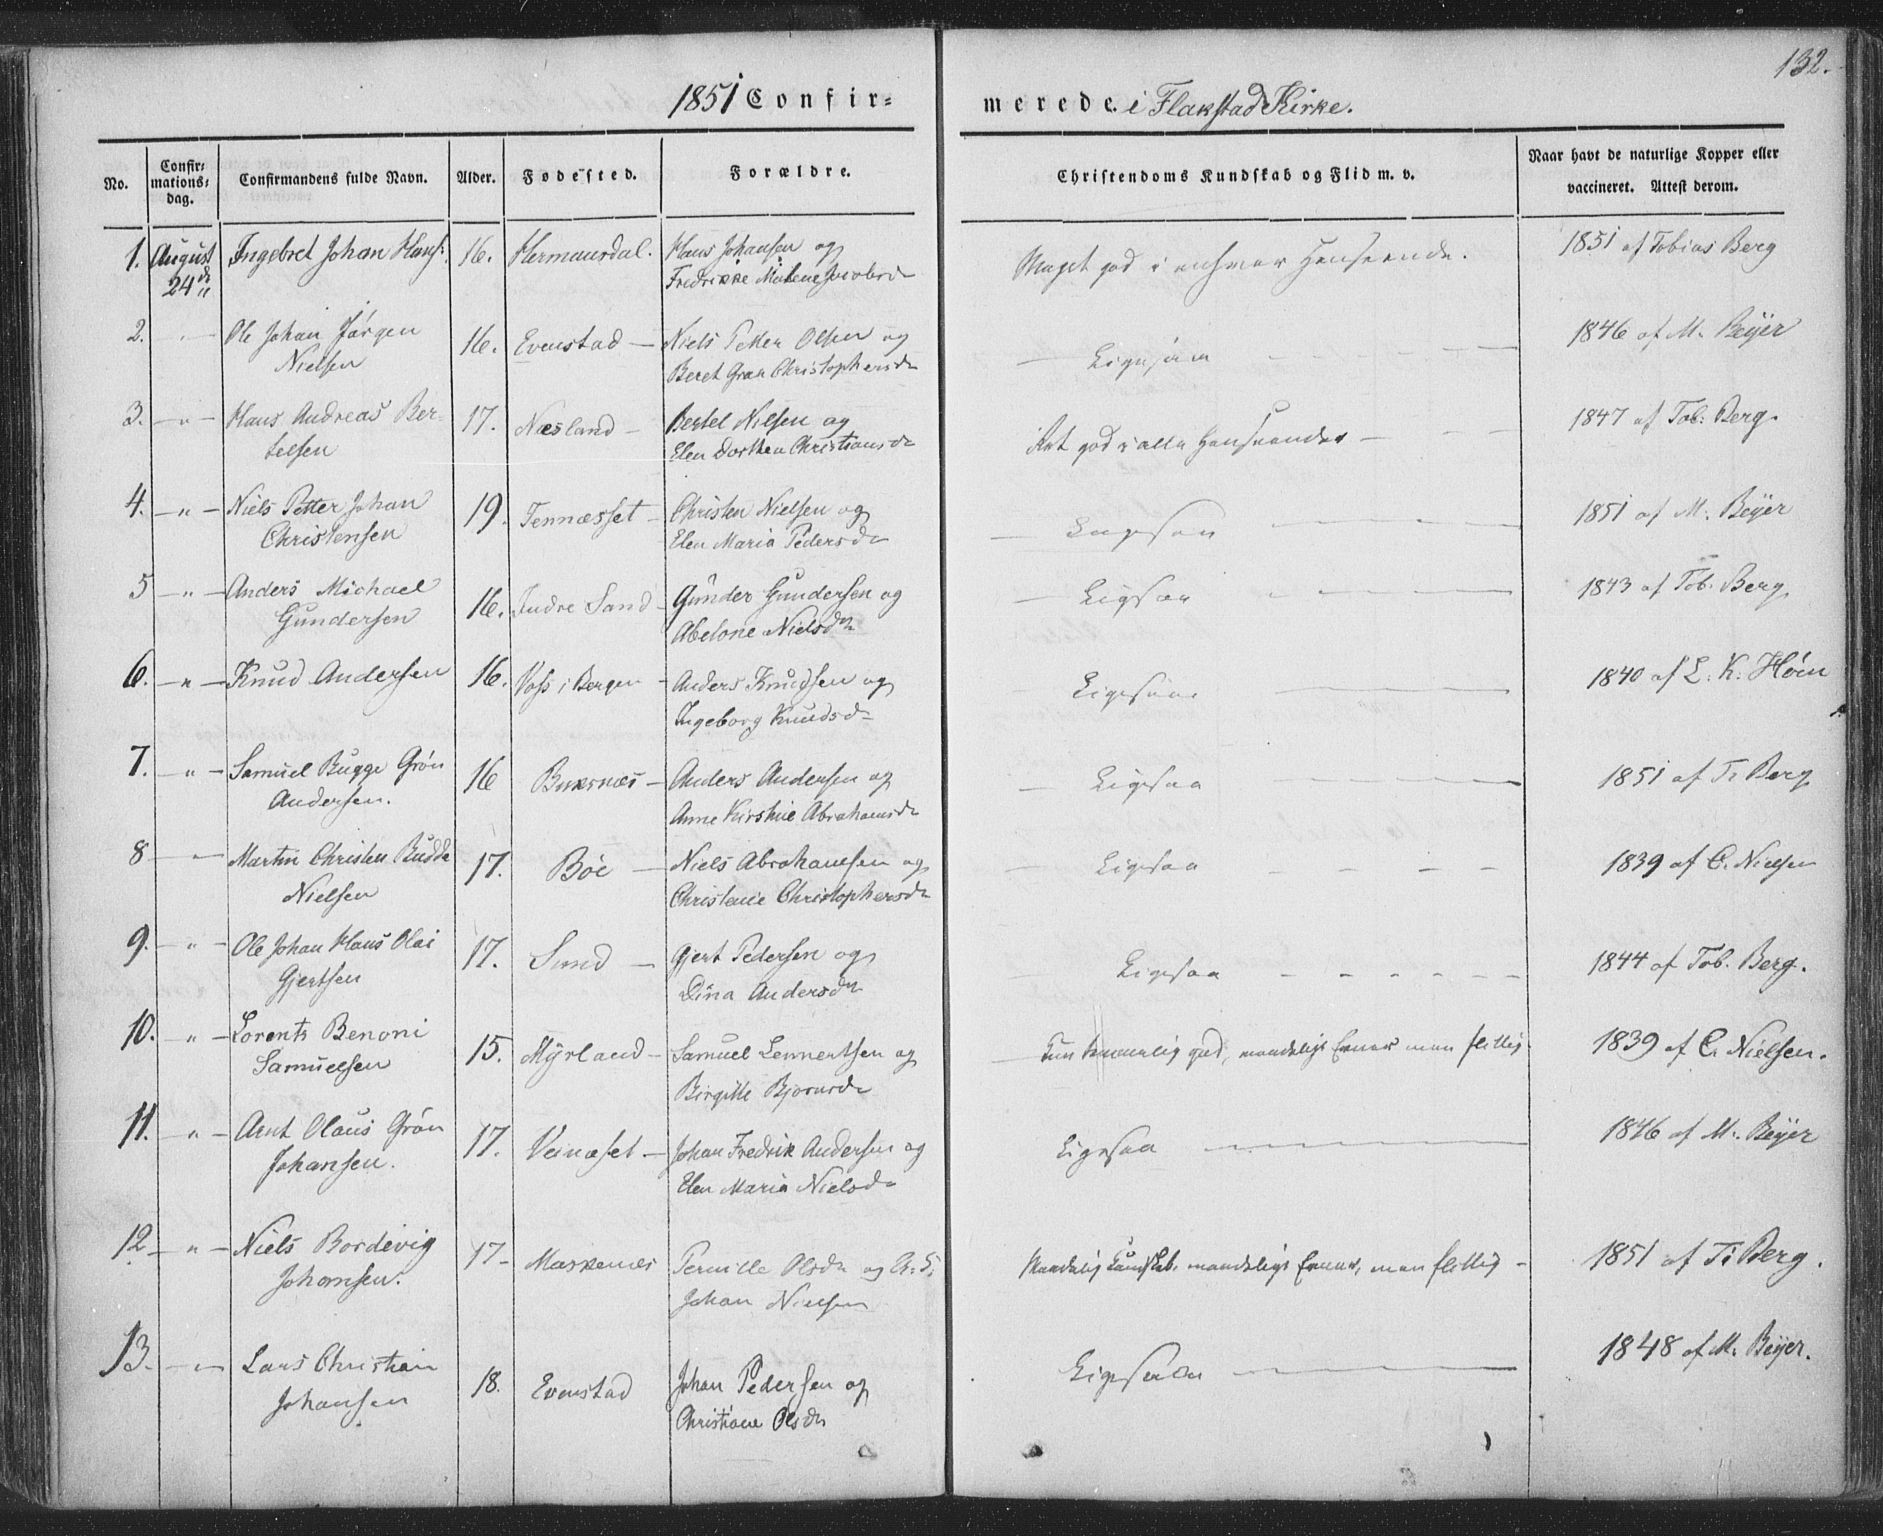 132.
1851 Confir=
merede i Flakstad Kirke.
No.
Confir=
mations=
dag.
Confirmandens fulde Navn.
Alder.
Fødested.
Forældre.
Christendoms Kundskab og Flid m. v.
Naar havt de naturlige Kopper eller
vaccineret. Attest derom.
1. August Ingebret Johan Hans: 16. Hermansdal. Hans Johansen og
24de Fredrikke Malene Jacobsd
Meget god i enhver Henseende.
1851 af Tobias Berg
2. Ole Johan Jørgen 16. Evenstad — Niels Petter Olsen og
Nielsen Beret Gran Christophersd
— Ligesaa
1846 af M. Beÿer
3. — " — Hans Andreas Ber= 17. Næsland — Bertel Nilsen og
telsen Elen Dorthea Christiansd
Ret god i alle Henseender —
1847 af Tob: Berg.
4. — " — Niels Petter Johan 19. Tennæsset — Christen Nielsen og
Christensen Elen Maria Pedersd
— Ligesaa
1851 af M. Beÿer
5 — " — Anders Michael 16. Indre Sand — Gunder Gundersen og
Gundersen Abelone Nielsdr
— Ligesaa
1843 af Tob. Berg
6. — " — Knud Andersen 16. Voss i Bergen — Anders Knudsen og
Ingeborg Knudsd
— Ligesaa
1840 af L. K. Høin
7. — " — Samuel Bugge Grøn 16 Buksnæs — Anders Andersen og
Andersen. Anne Kirstine Abrahamsd
— Ligesaa
1851 af T. Berg
8 — Martin Christen Budde 17. Böe — Niels Abrahamsen og
Nielsen Christense Christophersd
— Ligesaa
1839 af C. Nielsen
9. — " — Ole Johan Hans Olai 17. Sund — Gjert Pedersen og
Gjertsen Dina Andersdr
Ligesaa
1844 af Tob. Berg.
10. — " — Lorents Benoni 15. Mÿrland — Samuel Lennertsen og
Samuelsen Birgitte Bjørnsd
god, maadelige Evner men flittig.
1839 af C. Nielsen.
11. — " — Arnt Olaus Grøn 17. Veinæset — Johan Fredrik Andersen og
Johansen. Elen Maria Nielsd
Ligesaa
1846 af M. Beÿer
12 — " — Niels Bordevig 17 — Maskenæs Pernille Olsd og
Johansen. Johan Nielsen
Maadelig Kundskab, maadelige Evner, men flittig —
1851 af T. Berg.
13. — " — Lars Christian 18. Evenstad Johan Pedersen og
Johansen Christiane Olsd
Ligesaa
1848 af M. Beÿer.